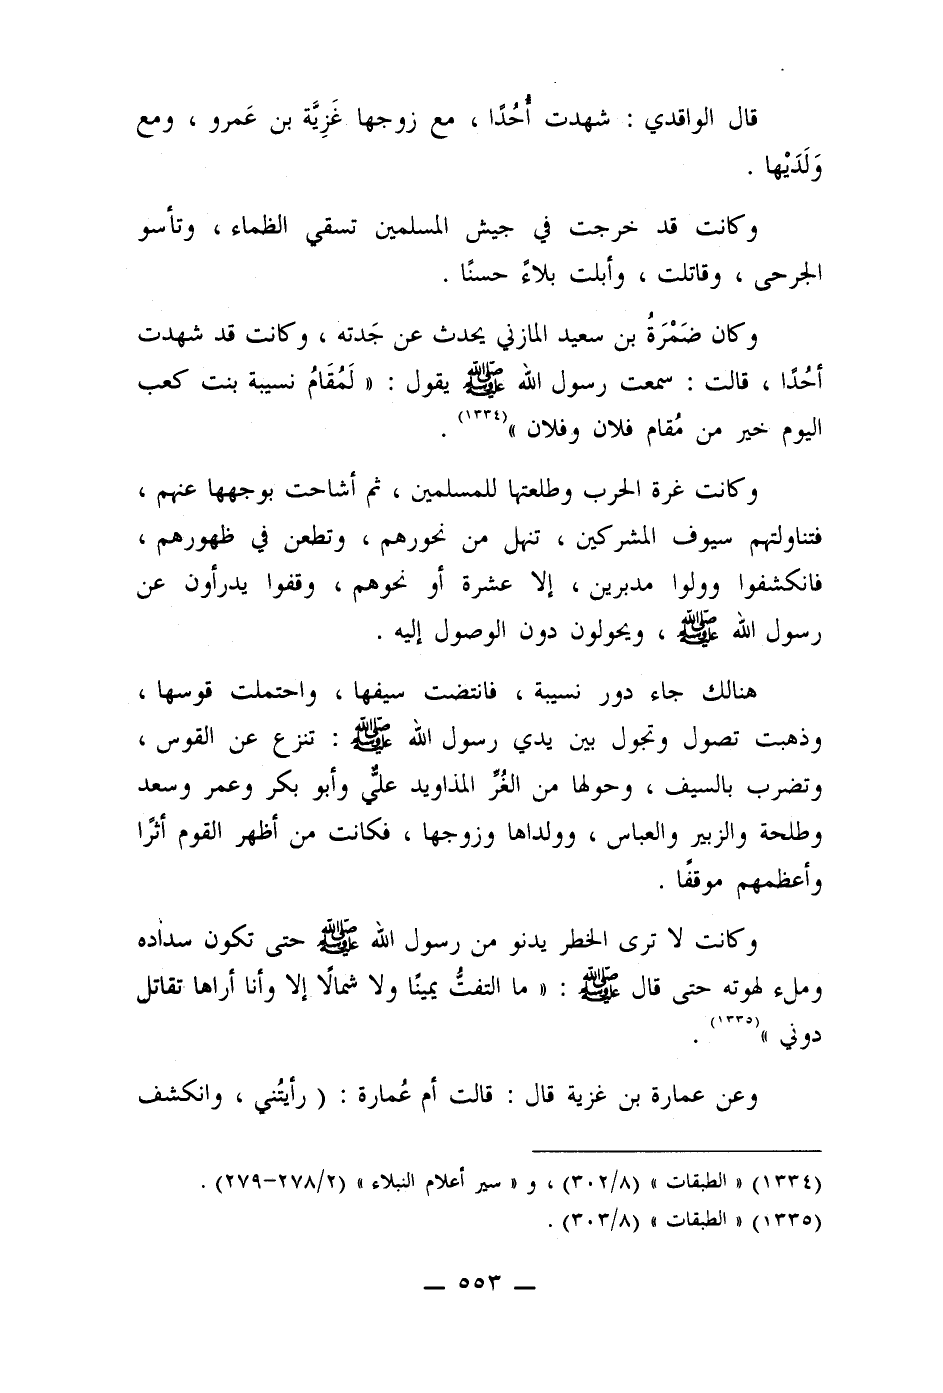 قال الواقدي : شهدت أُحُدًا ، مع زوجها غَزِيَّة بن عَمرو ، ومع
وَلَدَيْها .
وكانت قد خرجت في جيش المسلمين تسقي الظماء ، وتأسو
الجرحى ، وقاتلت ، وأبلت بلاءً حسنًا .
وكان ضَمْرَةُ بن سعيد المازني يحدث عن جَدته ، وكانت قد شهدت
أُحُدًا ، قالت : سمعت رسول الله ﷺ يقول : « لَمُقَامُ نسيبة بنت كعب
اليوم خير من مُقام فلان وفلان »(١٣٣٤) .
وكانت غرة الحرب وطلعتها للمسلمين ، ثم أشاحت بوجهها عنهم ،
فتناولتهم سيوف المشركين ، تنهل من نحورهم ، وتطعن في ظهورهم ،
فانكشفوا وولوا مدبرين ، إلا عشرة أو نحوهم ، وقفوا يدرأون عن
رسول الله ﷺ ، ويحولون دون الوصول إليه .
هنالك جاء دور نسيبة ، فانتضت سيفها ، واحتملت قوسها ،
وذهبت تصول وتجول بين يدي رسول الله ﷺ : تنزع عن القوس ،
وتضرب بالسيف ، وحولها من الغُرِّ المذاويد عليٌّ وأبو بكر وعمر وسعد
وطلحة والزبير والعباس ، وولداها وزوجها ، فكانت من أظهر القوم أثرًا
وأعظمهم موقفًا .
وكانت لا ترى الخطر يدنو من رسول الله ﷺ حتى تكون سداده
وملء لهوته حتى قال ﷺ : « ما التفتُّ يمينًا ولا شمالًا إلا وأنا أراها تقاتل
دوني »(١٣٣٥) .
وعن عمارة بن غزية قال : قالت أم عُمارة : ( رأيتُني ، وانكشف
(١٣٣٤) « الطبقات » (٣٠٢/٨) ، و « سير أعلام النبلاء » (٢٧٨/٢-٢٧٩) .
(١٣٣٥) « الطبقات » (٣٠٣/٨) .
ـــ ٥٥٣ ـــ